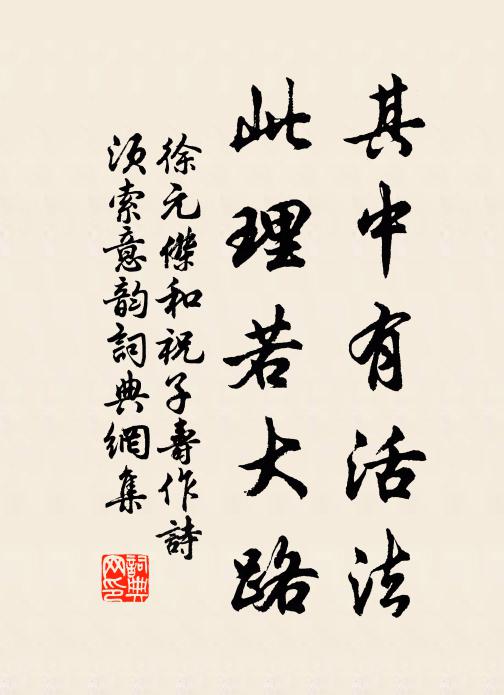 其中有活法
此理若大路
徐元傑和祝子壽作詩
須索意韵詞典網集
詞典网印